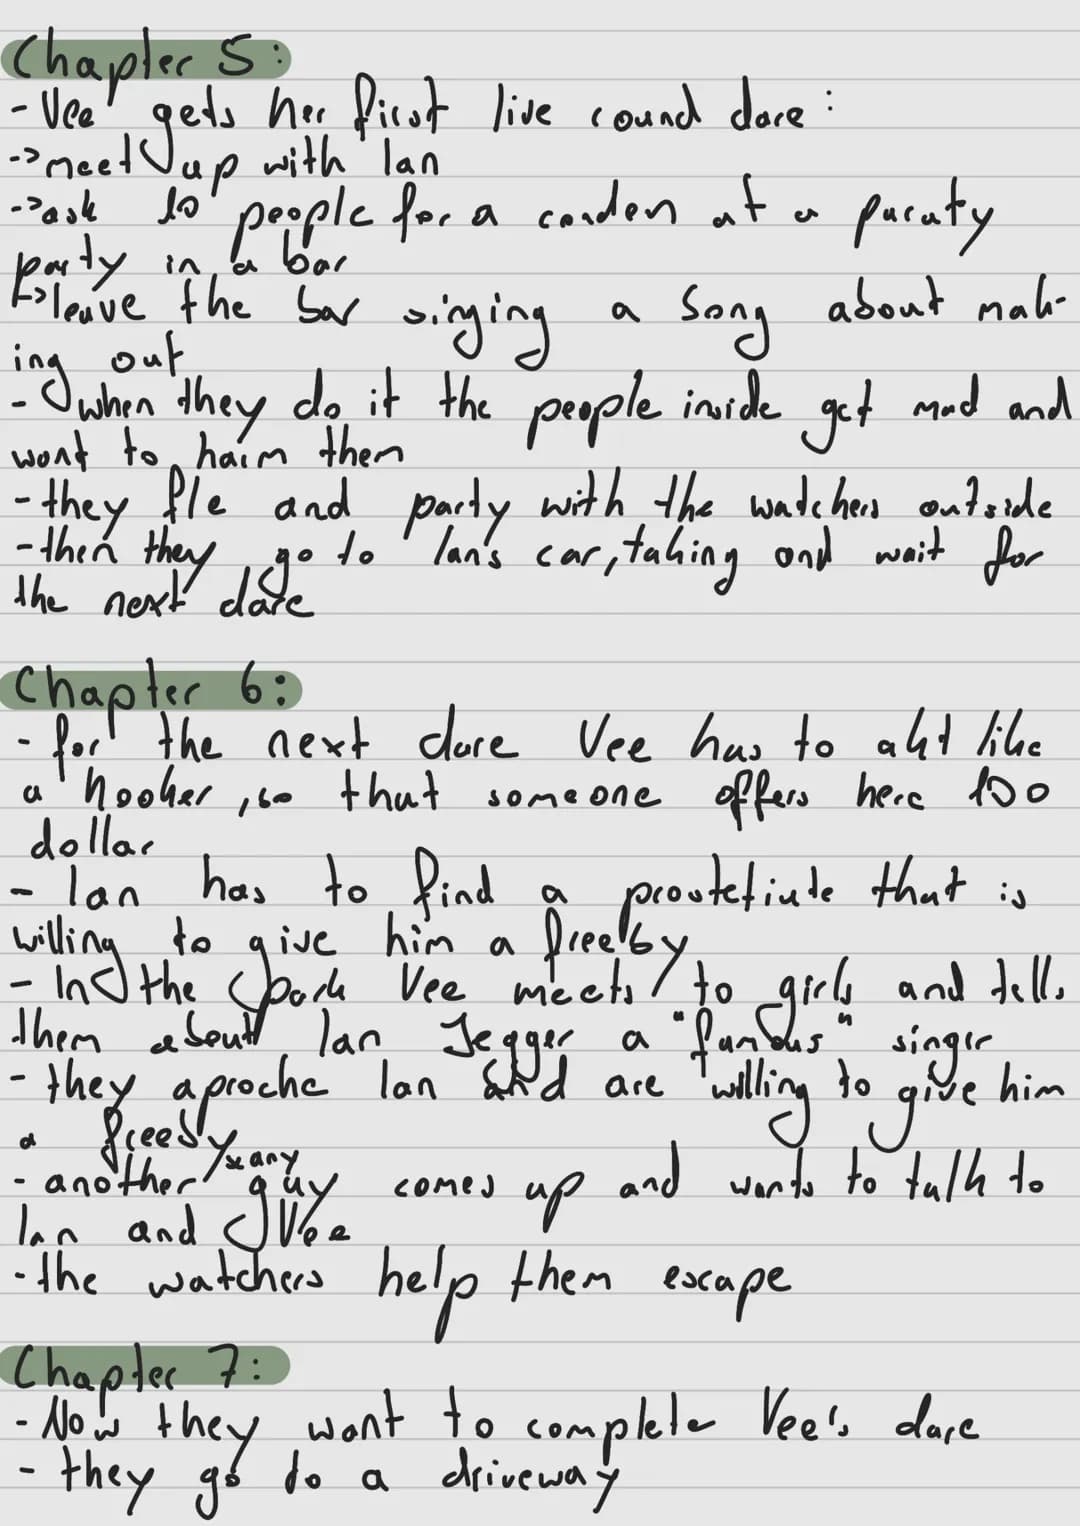 Chapter 5:
- Vee gets her first live round dare:
-> meet up with Ian
-> ask 10 people for a condom at a puraty
party in a bar
-> leave the bar singing a song about mak-
ing out
- when they do it the people inside get mad and
want to harm them
- they fle and party with the watchers outside
- then they go to Ian's car, talking and wait for
the next dare
Chapter 6:
- for the next dare Vee has to akt like
a hooker, so that someone offers here 100
dollar
- Ian has to find a prostetiute that is
willing to give him a freeby
- In the park Vee meets to girls and tells
them about Ian Jegger a "famous" singer
- they aproche Ian and are willing to give him
a freeby
- another *any guy comes up and wants to talk to
Ian and Vee
- the watchers help them escape
Chapter 7:
- Now they want to complete Vee's dare
- they go to a driveway